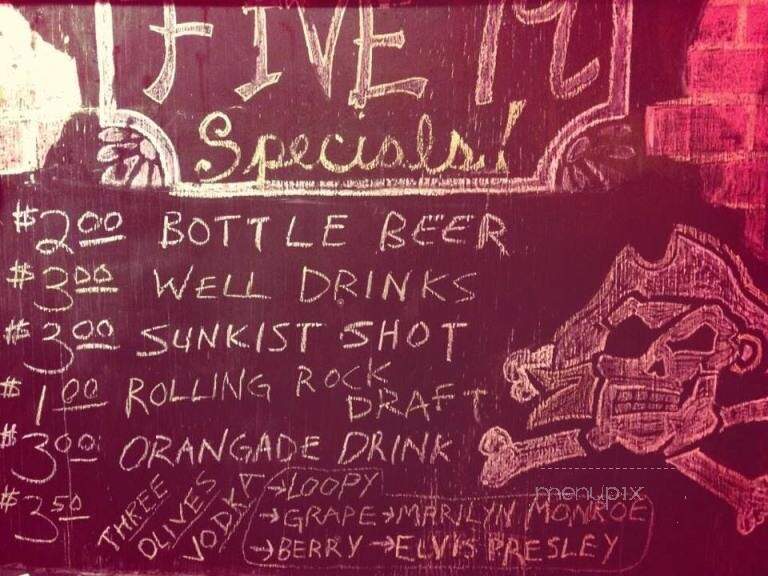 FIVE 19
Specials!
$2.00 BOTTLE BEER
$3.00 WELL DRINKS
$3.00 SUNKIST SHOT
$1.00 ROLLING ROCK
DRAFT
$3.00 ORANGADE DRINK
$3.50 THREE OLIVES VODKA
→LOOPY
→GRAPE→MARILYN MONROE
→BERRY→ELVIS PRESLEY
menupix